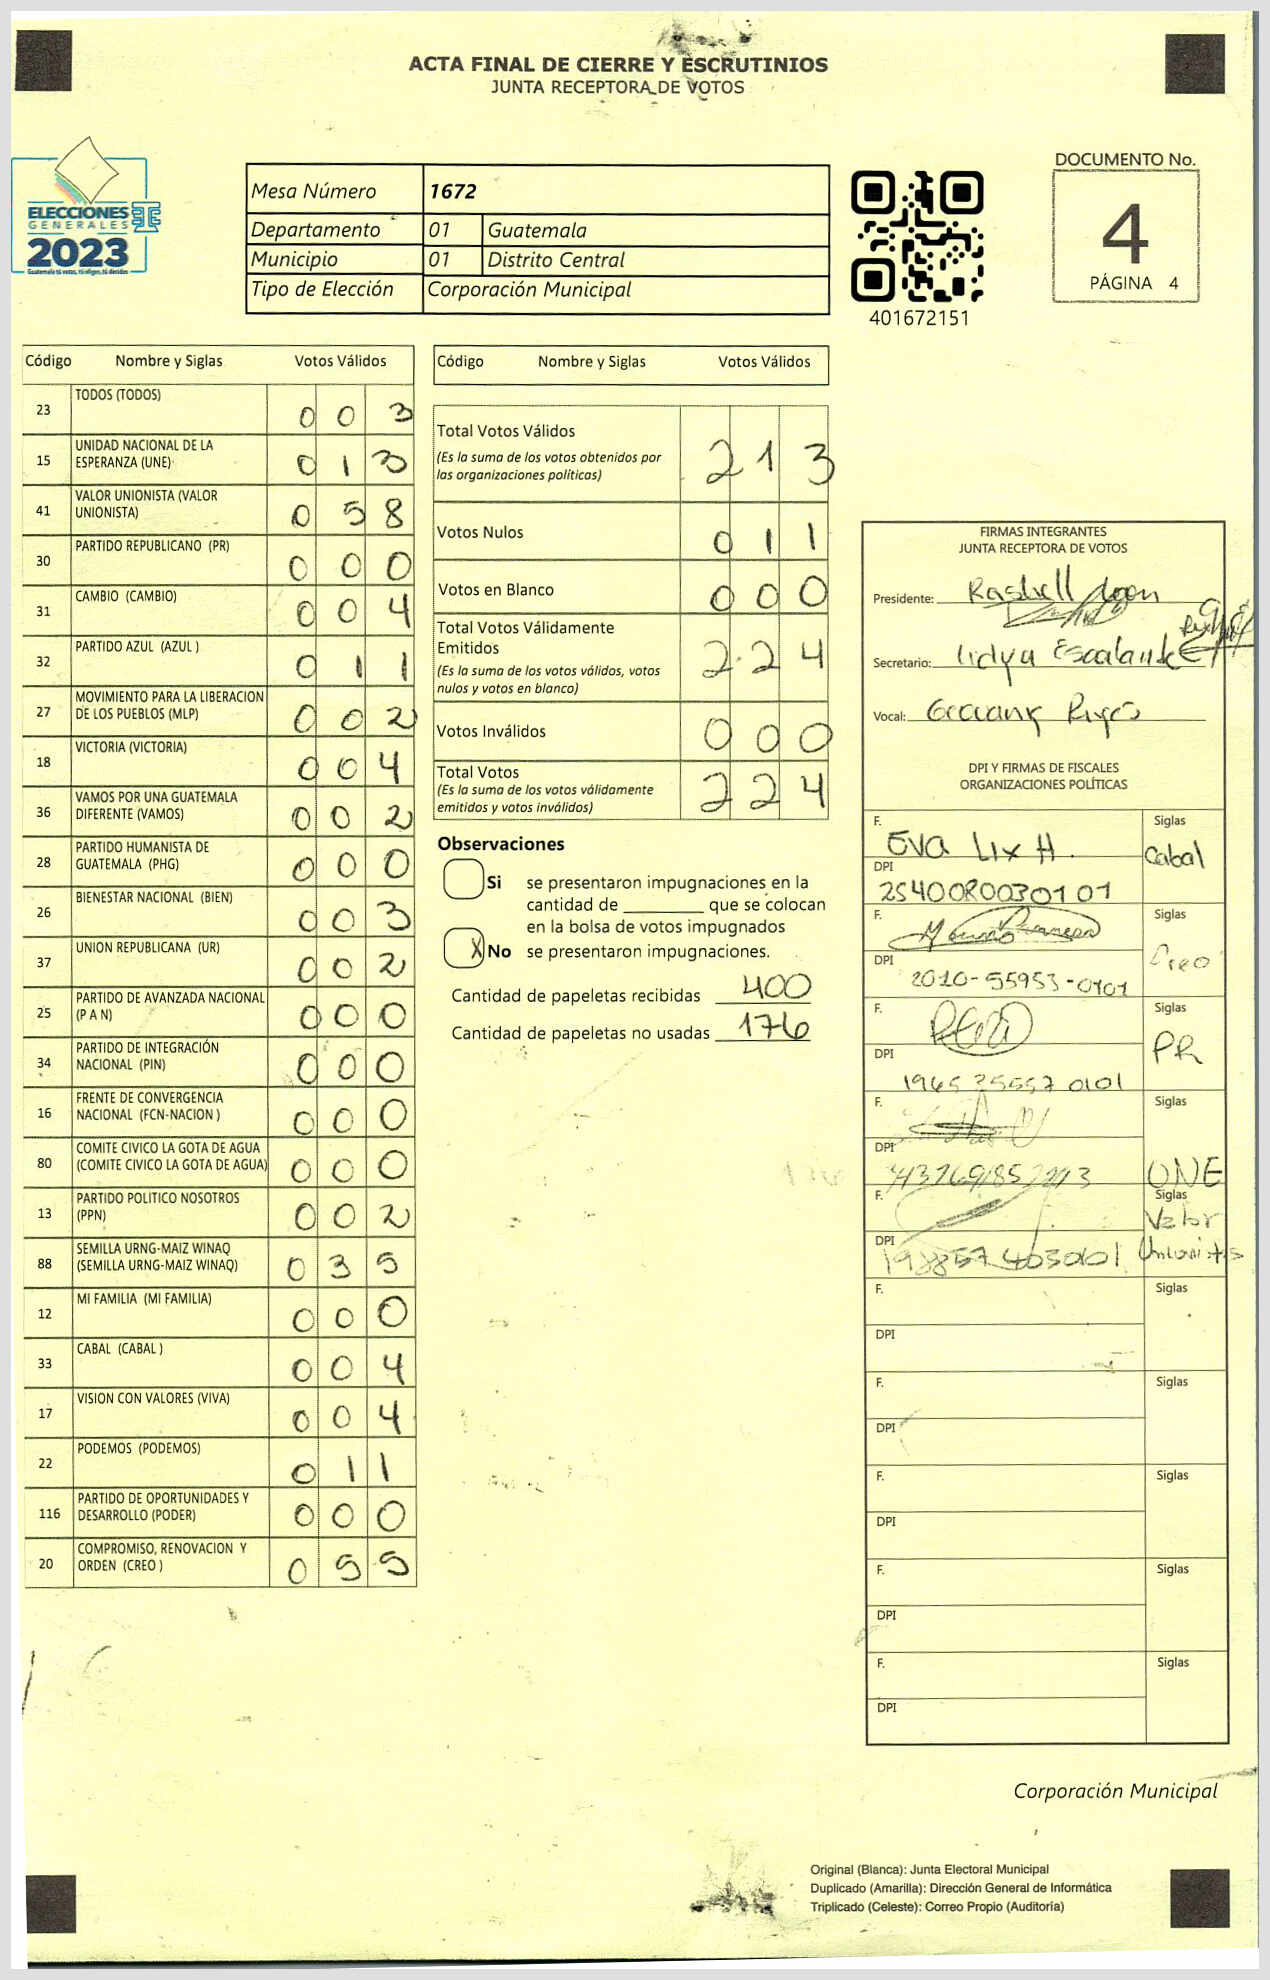 ACTA FINAL DE CIERRE Y ESCRUTINIOS
JUNTA RECEPTORA DE VOTOS
ELECCIONES
GENERALES
2023
Guatemala tú votas, tú eliges, tú decides
Mesa Número 1672
Departamento 01 Guatemala
Municipio 01 Distrito Central
Tipo de Elección Corporación Municipal
401672151
DOCUMENTO No.
4
PÁGINA 4
Código Nombre y Siglas Votos Válidos
23 TODOS (TODOS) 0 0 3
15 UNIDAD NACIONAL DE LA
ESPERANZA (UNE) 0 1 3
41 VALOR UNIONISTA (VALOR
UNIONISTA) 0 5 8
30 PARTIDO REPUBLICANO (PR) 0 0 0
31 CAMBIO (CAMBIO) 0 0 4
32 PARTIDO AZUL (AZUL ) 0 1 1
27 MOVIMIENTO PARA LA LIBERACION
DE LOS PUEBLOS (MLP) 0 0 2
18 VICTORIA (VICTORIA) 0 0 4
36 VAMOS POR UNA GUATEMALA
DIFERENTE (VAMOS) 0 0 2
28 PARTIDO HUMANISTA DE
GUATEMALA (PHG) 0 0 0
26 BIENESTAR NACIONAL (BIEN) 0 0 3
37 UNION REPUBLICANA (UR) 0 0 2
25 PARTIDO DE AVANZADA NACIONAL
(P A N) 0 0 0
34 PARTIDO DE INTEGRACIÓN
NACIONAL (PIN) 0 0 0
16 FRENTE DE CONVERGENCIA
NACIONAL (FCN-NACION ) 0 0 0
80 COMITE CIVICO LA GOTA DE AGUA
(COMITE CIVICO LA GOTA DE AGUA) 0 0 0
13 PARTIDO POLITICO NOSOTROS
(PPN) 0 0 2
88 SEMILLA URNG-MAIZ WINAQ
(SEMILLA URNG-MAIZ WINAQ) 0 3 5
12 MI FAMILIA (MI FAMILIA) 0 0 0
33 CABAL (CABAL ) 0 0 4
17 VISION CON VALORES (VIVA) 0 0 4
22 PODEMOS (PODEMOS) 0 1 1
116 PARTIDO DE OPORTUNIDADES Y
DESARROLLO (PODER) 0 0 0
20 COMPROMISO, RENOVACION Y
ORDEN (CREO ) 0 5 5
Código Nombre y Siglas Votos Válidos
Total Votos Válidos 2 1 3
(Es la suma de los votos obtenidos por
las organizaciones políticas)
Votos Nulos 0 1 1
Votos en Blanco 0 0 0
Total Votos Válidamente
Emitidos 2 2 4
(Es la suma de los votos válidos, votos
nulos y votos en blanco)
Votos Inválidos 0 0 0
Total Votos 2 2 4
(Es la suma de los votos válidamente
emitidos y votos inválidos)
Observaciones
Si se presentaron impugnaciones en la
cantidad de ________ que se colocan
en la bolsa de votos impugnados
X No se presentaron impugnaciones.
Cantidad de papeletas recibidas 400
Cantidad de papeletas no usadas 176
FIRMAS INTEGRANTES
JUNTA RECEPTORA DE VOTOS
Presidente: Rashell
Secretario: Lidya Escalante
Vocal:
DPI Y FIRMAS DE FISCALES
ORGANIZACIONES POLÍTICAS
F. Eva Lix H. Siglas
DPI Cabal
F. Siglas
DPI Creo
2010-55953-0101
F. Siglas
DPI PR
F. Siglas
DPI UNE
F. Siglas
DPI Valor Unionista
F. Siglas
DPI
F. Siglas
DPI
F. Siglas
DPI
F. Siglas
DPI
F. Siglas
DPI
Corporación Municipal
Original (Blanca): Junta Electoral Municipal
Duplicado (Amarilla): Dirección General de Informática
Triplicado (Celeste): Correo Propio (Auditoría)